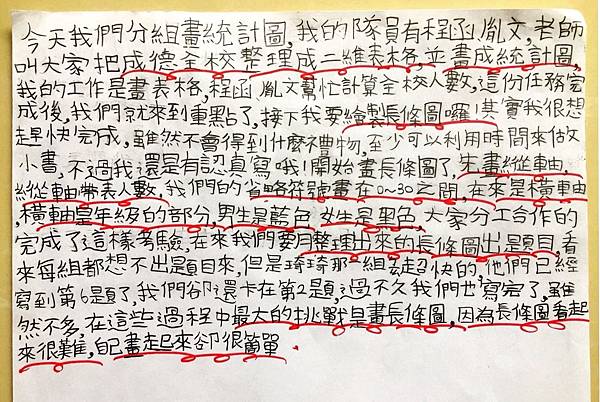 今天我們分組畫統計圖,我的隊員有程函,胤文,老師
叫大家把成德全校整理成二維表格,並畫成統計圖,
我的工作是畫表格,程函,胤文幫忙計算全校人數,這份任務完
成後,我們就來到重點了,接下我要繪製長條圖囉!其實我很想
趕快完成,雖然不會得到什麼禮物,至少可以利用時間來做
小書,不過我還是有認真寫哦!開始畫長條圖了,先畫縱軸,
縱軸帶表人數,我們的省略符號畫在0~30之間,在來是橫軸
,橫軸是年級的部分,男生是藍色,女生是黑色,大家分工合作的
完成了這樣考驗,在來我們要用整理出來的長條圖出題目,看
來每組都想不出題目來,但是琦琦那一組超快的,他們已經
寫到第6題了,我們卻還卡在第2題,過不久我們也寫完了,雖
然不多,在這些過程中最大的挑戰是畫長條圖,因為長條圖看起
來很難,自己畫起來卻很簡單.